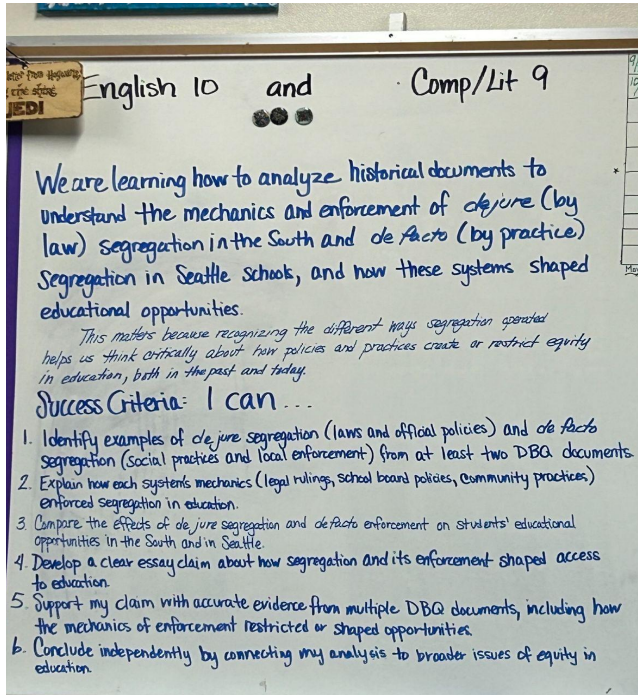 letter from Hogwarts,
JEDI
English 10 and Comp/Lit 9
We are learning how to analyze historical documents to
understand the mechanics and enforcement of dejure (by
law) segregation in the South and de facto (by practice)
Segregation in Seattle Schools, and how these systems shaped
educational opportunities.
This matters because recognizing the different ways segregation operated
helps us think critically about how policies and practices create or restrict equity
in education, both in the past and today.
Success Criteria: I can...
1. Identify examples of de jure segregation (laws and official policies) and de facto
segregation (social practices and local enforcement) from at least two DBQ documents.
2. Explain how each system's mechanics (legal rulings, school board policies, community practices)
enforced segregation in education.
3. Compare the effects of de jure segregation and de facto enforcement on students' educational
opportunities in the South and in Seattle.
4. Develop a clear essay claim about how segregation and its enforcement shaped access
to education.
5. Support my claim with accurate evidence from multiple DBQ documents, including how
the mechanics of enforcement restricted or shaped opportunities.
6. Conclude independently by connecting my analysis to broader issues of equity in
education.